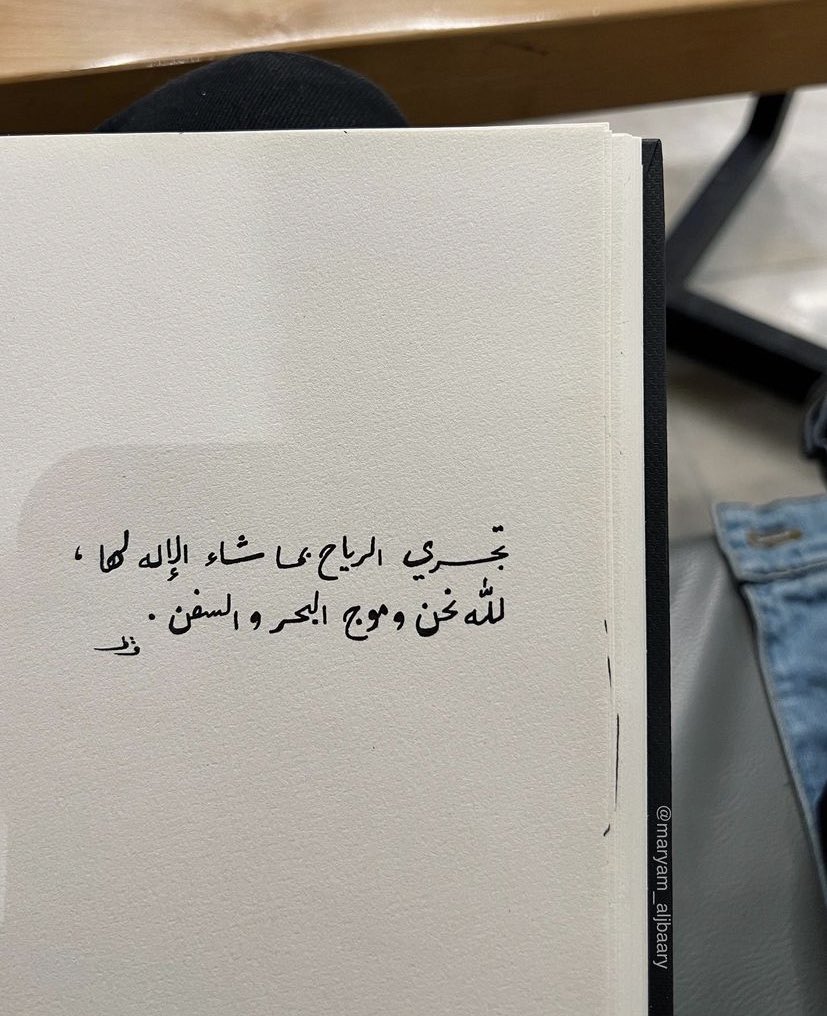 تجري الرياح بما شاء الإله لها ،
لله نحن وموج البحر والسفن .
@maryam_aljbaary